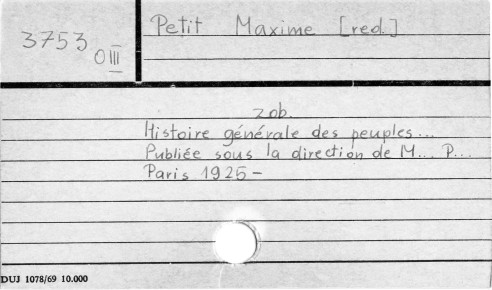 3753
O III
Petit Maxime [red.]
zob.
Histoire générale des peuples...
Publiée sous la direction de M... P...
Paris 1925-
DUJ 1078/69 10.000